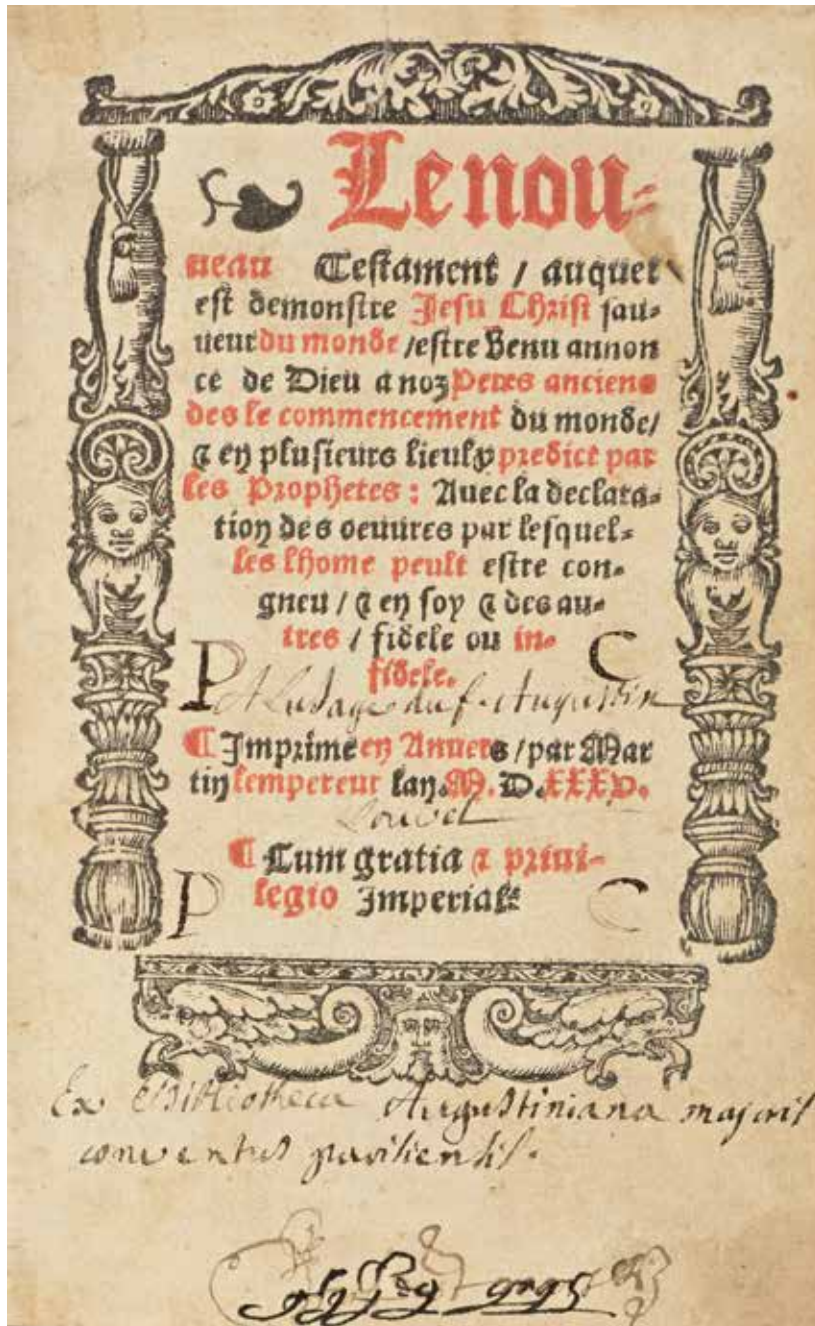 Le nou-
ueau Testament / auquel
est demonstre Jesu Christ sau-
ueur du monde / estre venu annon
ce de Dieu a noz Peres anciens
des le commencement du monde /
⁊ en plusieurs lieulx predict par
les Prophetes : Auec la declara-
tion des oeuures par lesquel-
les lhome peult estre con-
gneu / ⁊ en soy ⁊ des au-
tres / fidele ou in-
P C
fidele.
A Lusage du f. Augustin
¶ Imprime en Anuers / par Mar
tin lempereur lan. M. D. XXXV.
Louvel
¶ Cum gratia ⁊ priui-
legio Imperiali
P C
Ex Bibliotheca Augustiniana majoris
conventus parisiensis.